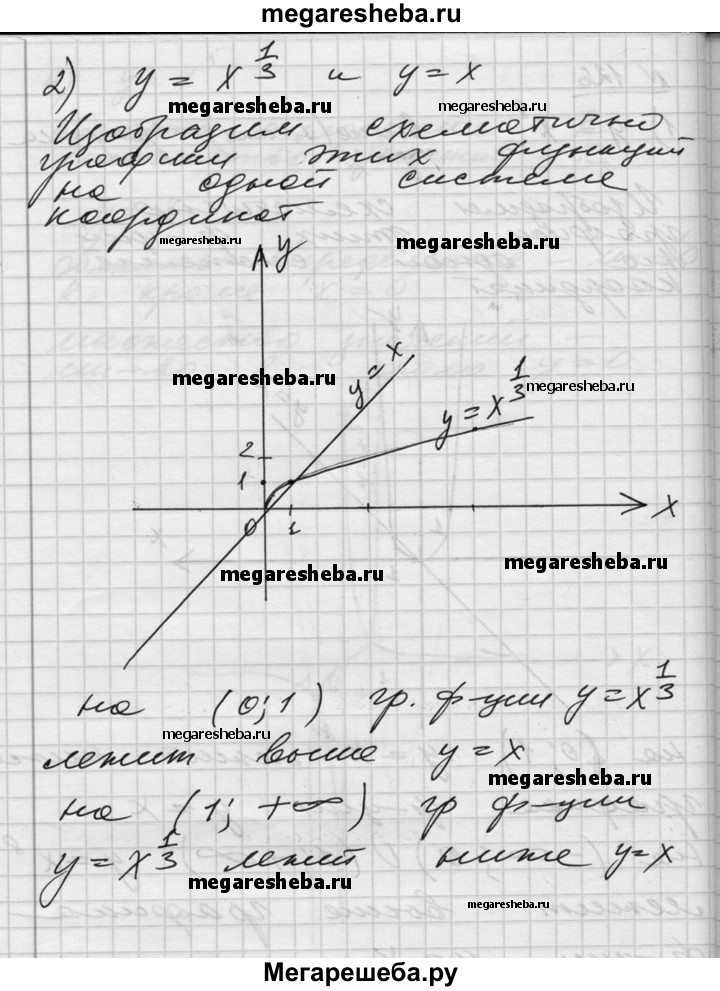 megaresheba.ru
2) y = x^{1/3} и y = x
megaresheba.ru megaresheba.ru
Изобразим схематично
графики этих функций
на одной системе
координат
megaresheba.ru megaresheba.ru
y
megaresheba.ru y = x
y = x^{1/3} megaresheba.ru
2
1
0 1 x
megaresheba.ru megaresheba.ru
на (0; 1) гр. ф-ции y = x^{1/3}
megaresheba.ru
лежит выше y = x
megaresheba.ru
на (1; +∞) гр ф-ции
y = x^{1/3} лежит ниже y = x
megaresheba.ru
megaresheba.ru
Мегарешеба.ру